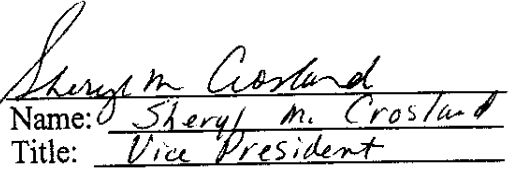 Sheryl M Crosland
Name: Sheryl M. Crosland
Title: Vice President